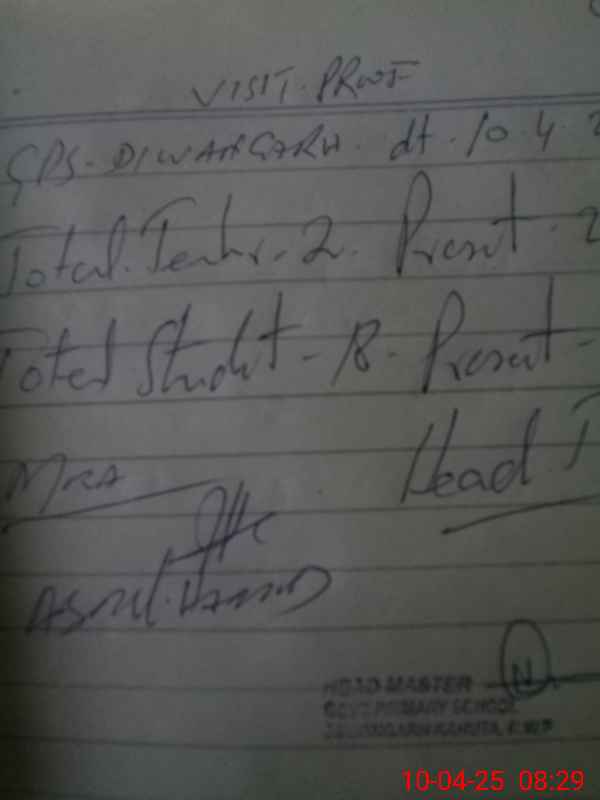 VISIT. PROOF
GPS. DIWANGARH. dt. 10.4.2
Total. Teacher. 2. Present. 2
Total Student - 18. Present -
MEA Head. T
HEAD MASTER
GOVT PRIMARY SCHOOL
KAHUTA, RWP
10-04-25 08:29